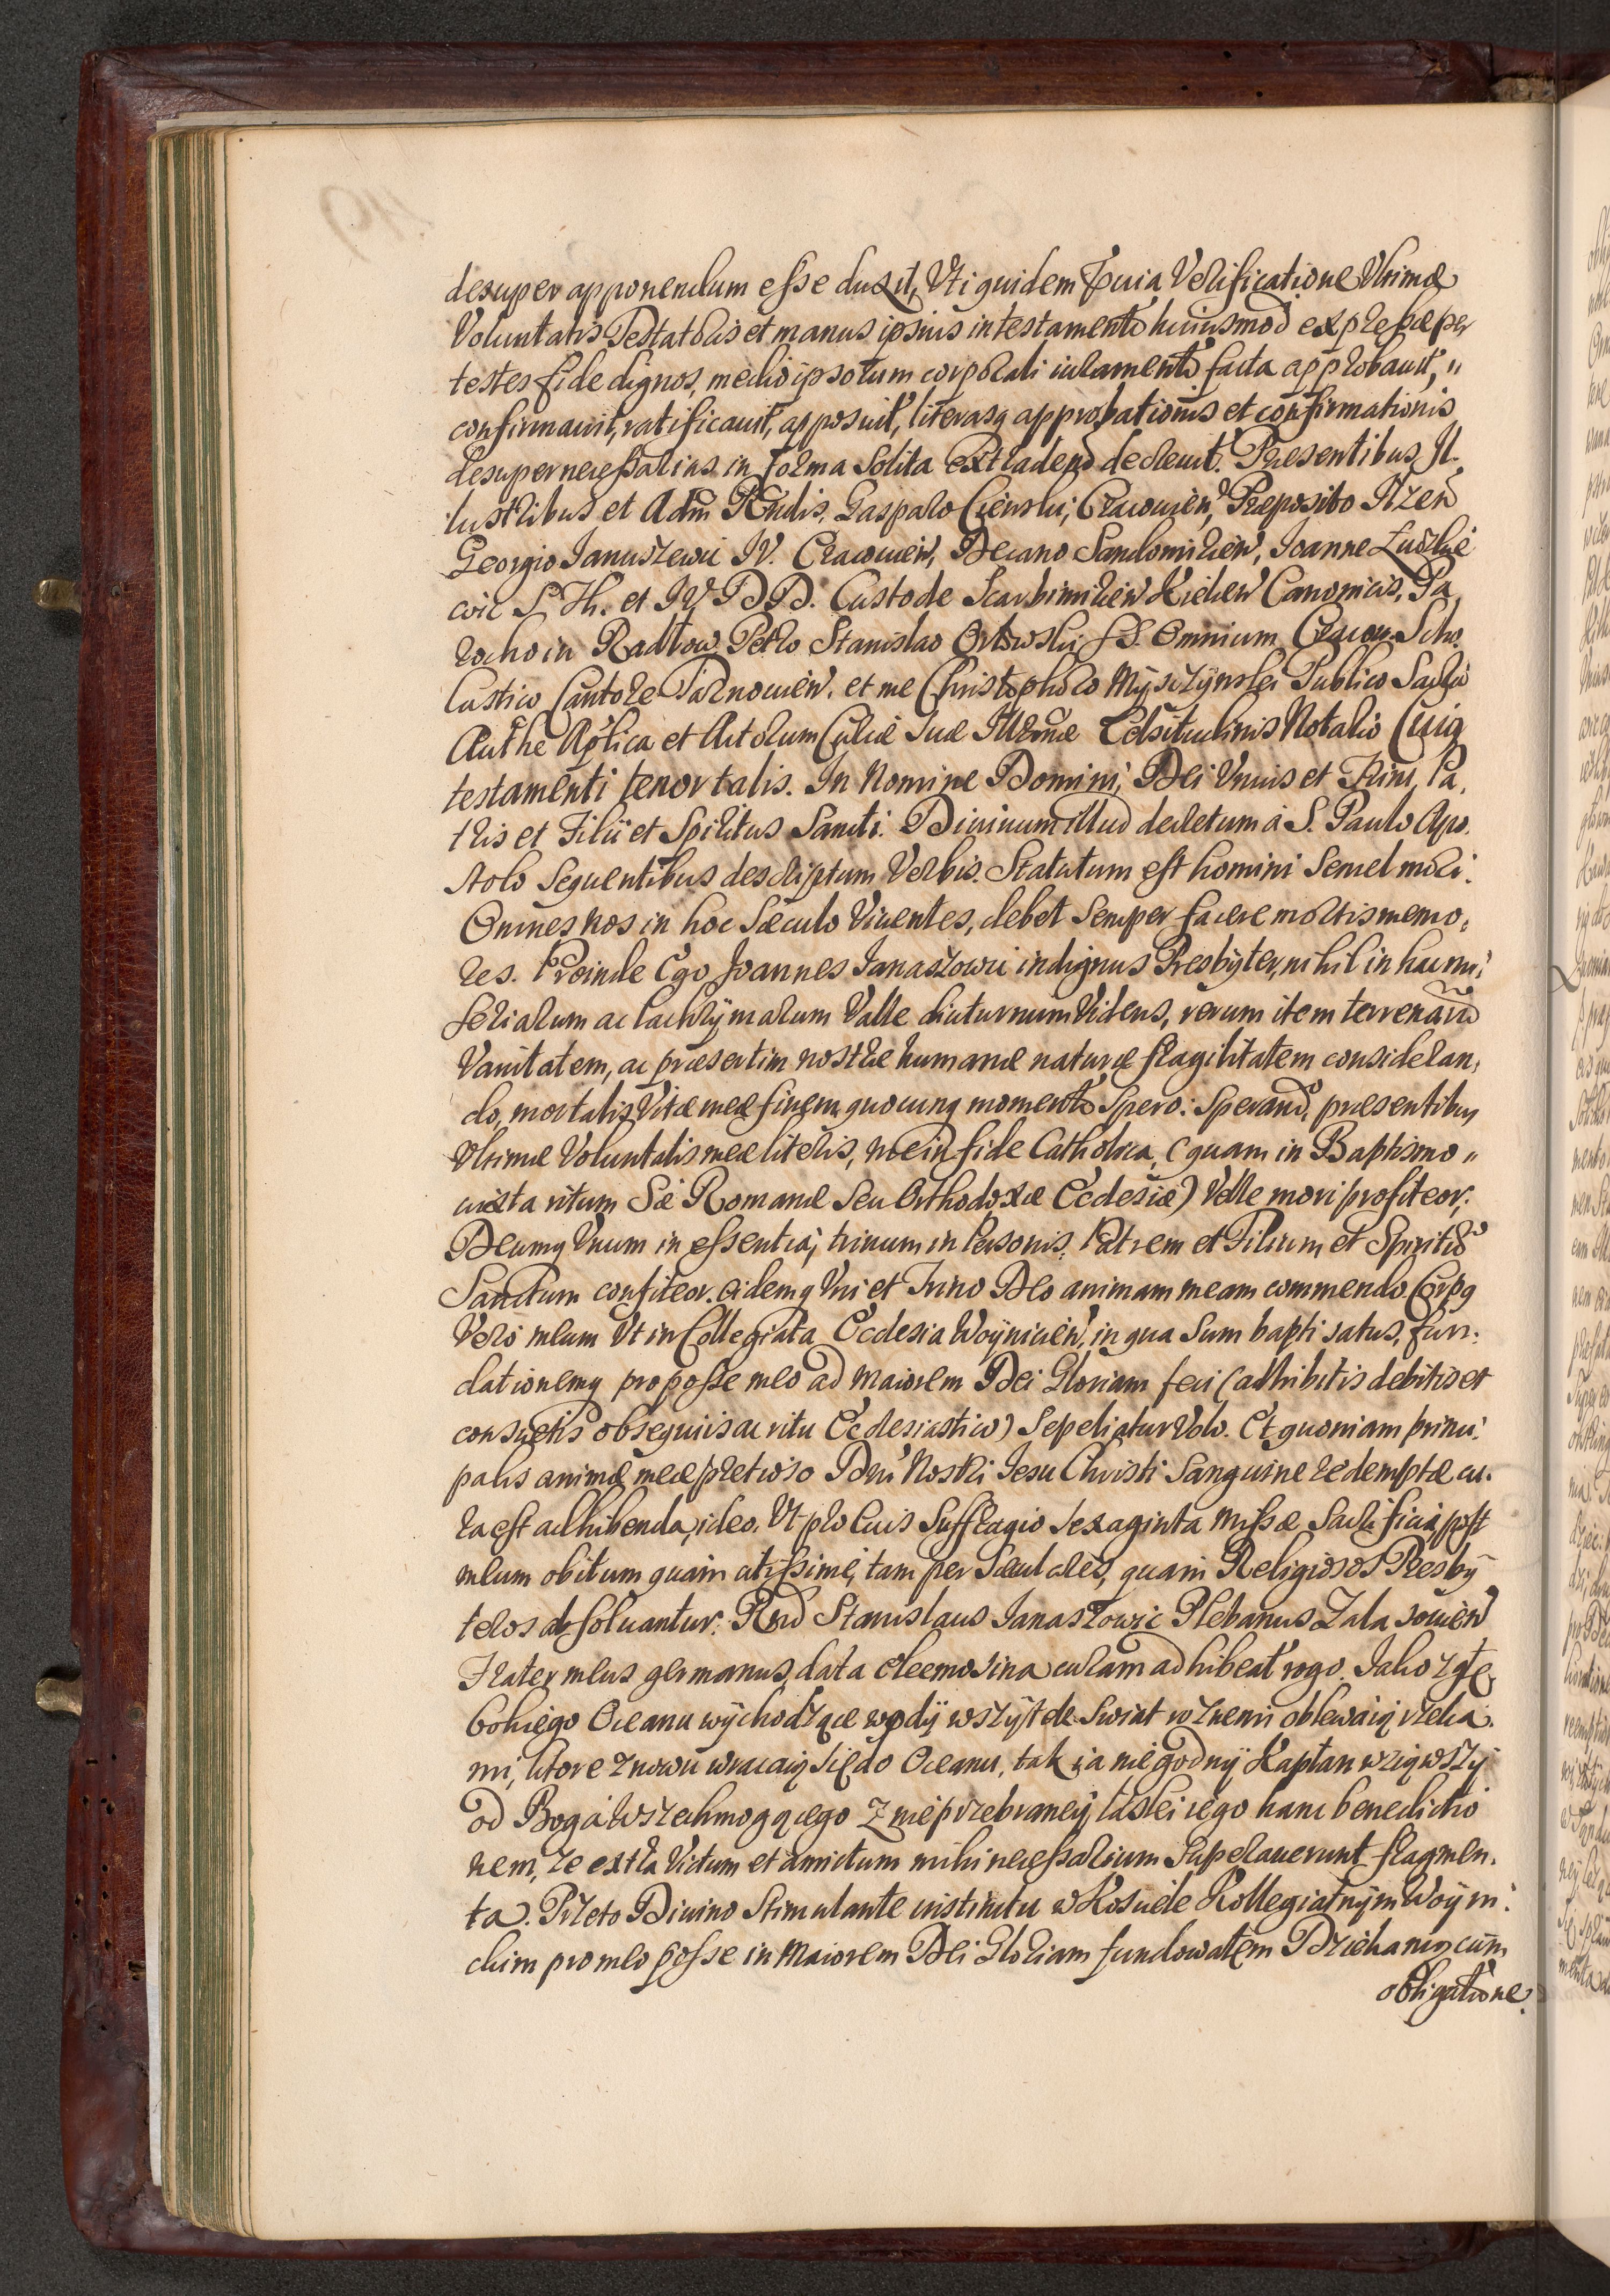 desuper apponendum esse duxit, Uti quidem prævia Verificatione Ultimæ
Voluntatis Testatoris et manus ipsius in testamento huiusmod expressæ per
testes fide dignos, medio ipsorum corporali iuramento facta approbavit, „
confirmavit, ratificavit, apposuit, literasq approbationis et confirmationis
desuper necessarias in forma Solita extradend decrevit. Præsentibus Il-
lustribus et Adm Rndis, Gasparo Cienski, Cracovien, Præposito Ilzen
Georgio Januszewic IV. Cracovien, Decano Sandomirien, Joanne
cvic S. Th. et IV DD. Custode Scarbimirien Kielcen Canonicis, Pa,
rocho in Radłow, Petro Stanislao Orłowski SS. Omnium Cracov. Scho,
lastico Cantore Tarnovien. et me Christophoro Myszczynski Publico Sacra
Authe Aplica et Actorum Curiæ Suæ Illrmæ Celsitudinis Notario Cuiq
testamenti tenor talis. In Nomine Domini, Dei Unius et Trini, Pa,
tris et Filii et Spiritus Sancti. Divinum illud decretum à S. Paulo Apo.
stolo Sequentibus descriptum Verbis. Statutum est homini Semel mori.
Omnes nos in hoc Sæculo Viventes, debet Semper facere mortis memo,
res. Proinde Ego Joannes Janaszowic indignus Presbyter, nihil in hac mi,
seriarum ac lachrymarum Valle diuturnum Videns, rerum item terrenarũ
Vanitatem, ac præsertim nostræ humanæ naturæ fragilitatem consideran,
do, mortalis Vitæ meæ finem quocunq momento Spero: Sperand, præsentibus
Ultimæ Voluntatis meæ literis, me in fide Catholica, (quam in Baptismo „
iuxta ritum Sæ Romanæ Seu Orthodoxæ Ecclesiæ) Velle mori profiteor,
Deumq Unum in essentia, trinum in Personis, Patrem et Filium et Spiritũ
Sanctum confiteor. eidemq Uni et Trino Deo animam meam commendo. Corpq
Vero meum Ut in Collegiata Ecclesia Woynicien, in qua Sum baptisatus, fun.
dationemq pro posse meo ad maiorem Dei Gloriam feci (adhibitis debitis et
consuetis obsequiis ac ritu Ecclesiastico) Sepeliatur Volo. Et quoniam princi.
palis animæ meæ pretioso Dni Nostri Jesu Christi Sanguine redemptæ cu.
ra est adhibenda, ideo, Ut pro Cuis Suffragio Sexaginta Missæ Sacrificia, post
meum obitum quam citissimè, tam per Sæculares, quam Religiosos Presby
teros absolvantur. Rnd Stanislaus Janaszowic Plebanus Zalasowien
Frater meus germanus, data eleemosina curam adhibeat rogo. Jako z głę
bokiego Oceanu wychodzące wody wszystek Swiat rożnemi oblewaią rzeka.
mi, ktore znowu wracaią się do Oceanu, tak ia niegodny Kapłan wziąwszy
od Boga Wszechmogącego Z nieprzebraney łaski iego hanc benedictio
nem, że extra Victum et amictum mihi necessarium Superaverunt fragmen.
ta. Przeto Divino Stimulante instinctu w Kosciele Kollegiatnym Woyni.
ckim pro meo posse in Maiorem Dei Gloriam fundowałem Dziekanią cum
obligatione.